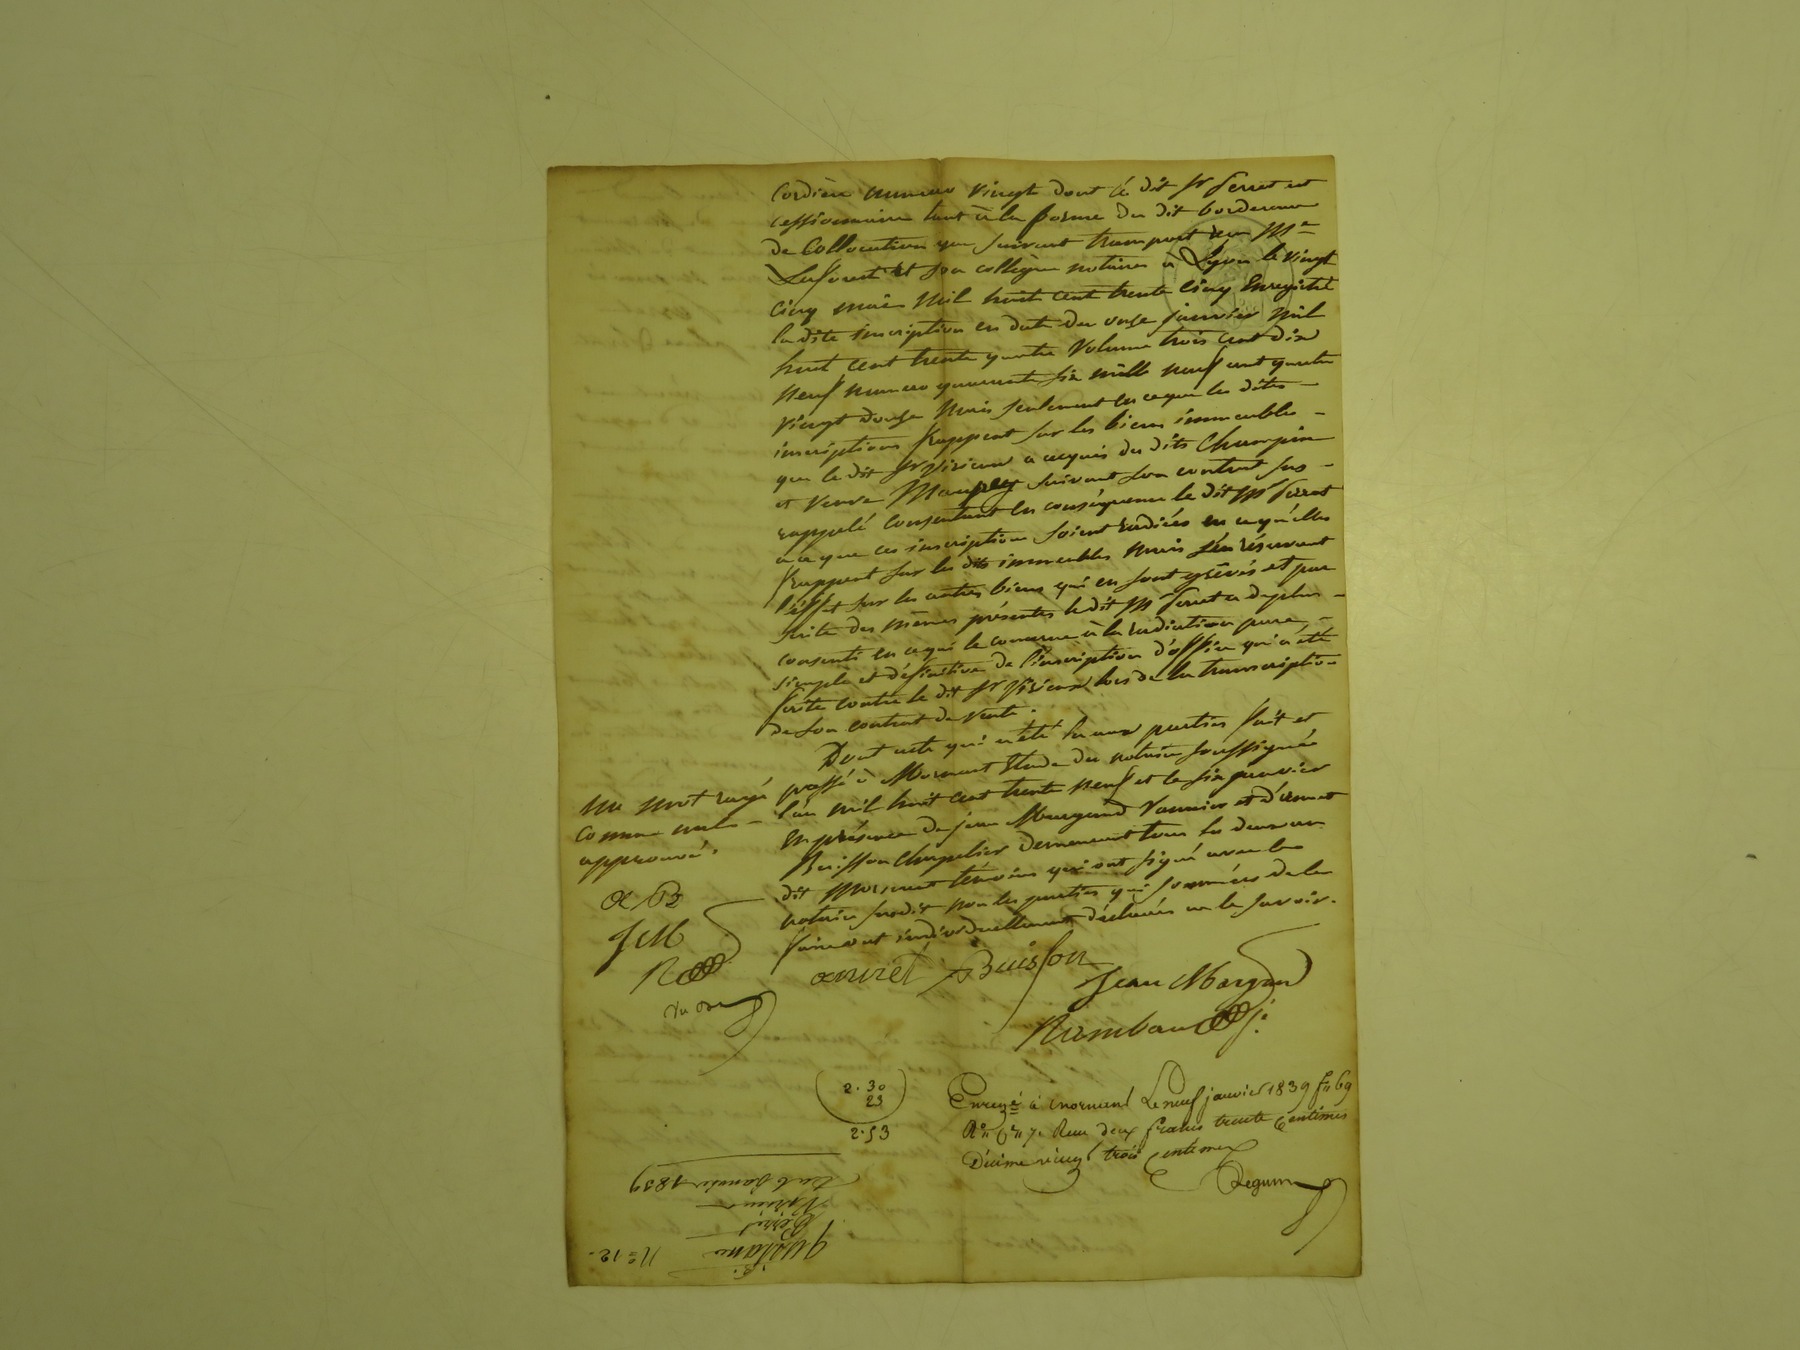 Cordière numero vingt dont le dit Sr Perret est
cessionnaire tant à la forme du dit bordereau
de Collocation que suivant transport reçu Me
Laforest et son collègue notaires à Lyon le vingt
cinq mai mil huit cent trente cinq Enregistré
la dite inscription en date du onze janvier mil
huit cent trente quatre Volume trois cent dix
neuf numero quarante six mille neuf cent quatre
vingt douze mais seulement en ce que les dites
inscriptions frappent sur les biens immeubles
que le dit Sr a acquis des dits Champin
et Veuve suivant son contrat sus
rappelé consentant en conséquence le dit Mr Perret
a ce que ces inscriptions soient radiées en ce qu'elles
frappent sur les dits immeubles mais s'en réservant
l'effet sur les autres biens qui en sont grévés et par
suite des mêmes présentes le dit Mr Perret a de plus
consenti en ce qui le concerne à la radiation pure,
simple et définitive de l'inscription d'office qui a été
faite contre le dit Sr lors de la transcription
de son contrat de vente.
Dont acte qui a été lu aux parties fait et
passé à Mornant Etude du notaire soussigné
l'an mil huit cent trente neuf et le six janvier
En présence de jean Margand Vannier et d'
Buisson Chapelier demeurant tous les deux au
dit Mornant témoins qui ont signé avec le
notaire susdit non les parties qui sommées de le
faire ont individuellement déclarées ne le savoir.
un mot rayé
comme nul
approuvé.
JM
Buisson
Jean Margand
2.30
23
2.53
Enregé à Mornant Le neuf janvier 1839 fo 69
Ro Reçu deux francs trente Centimes
Décime vingt trois Centimes
No 12.
Quittance
Perret
Du 6 Janvier 1839